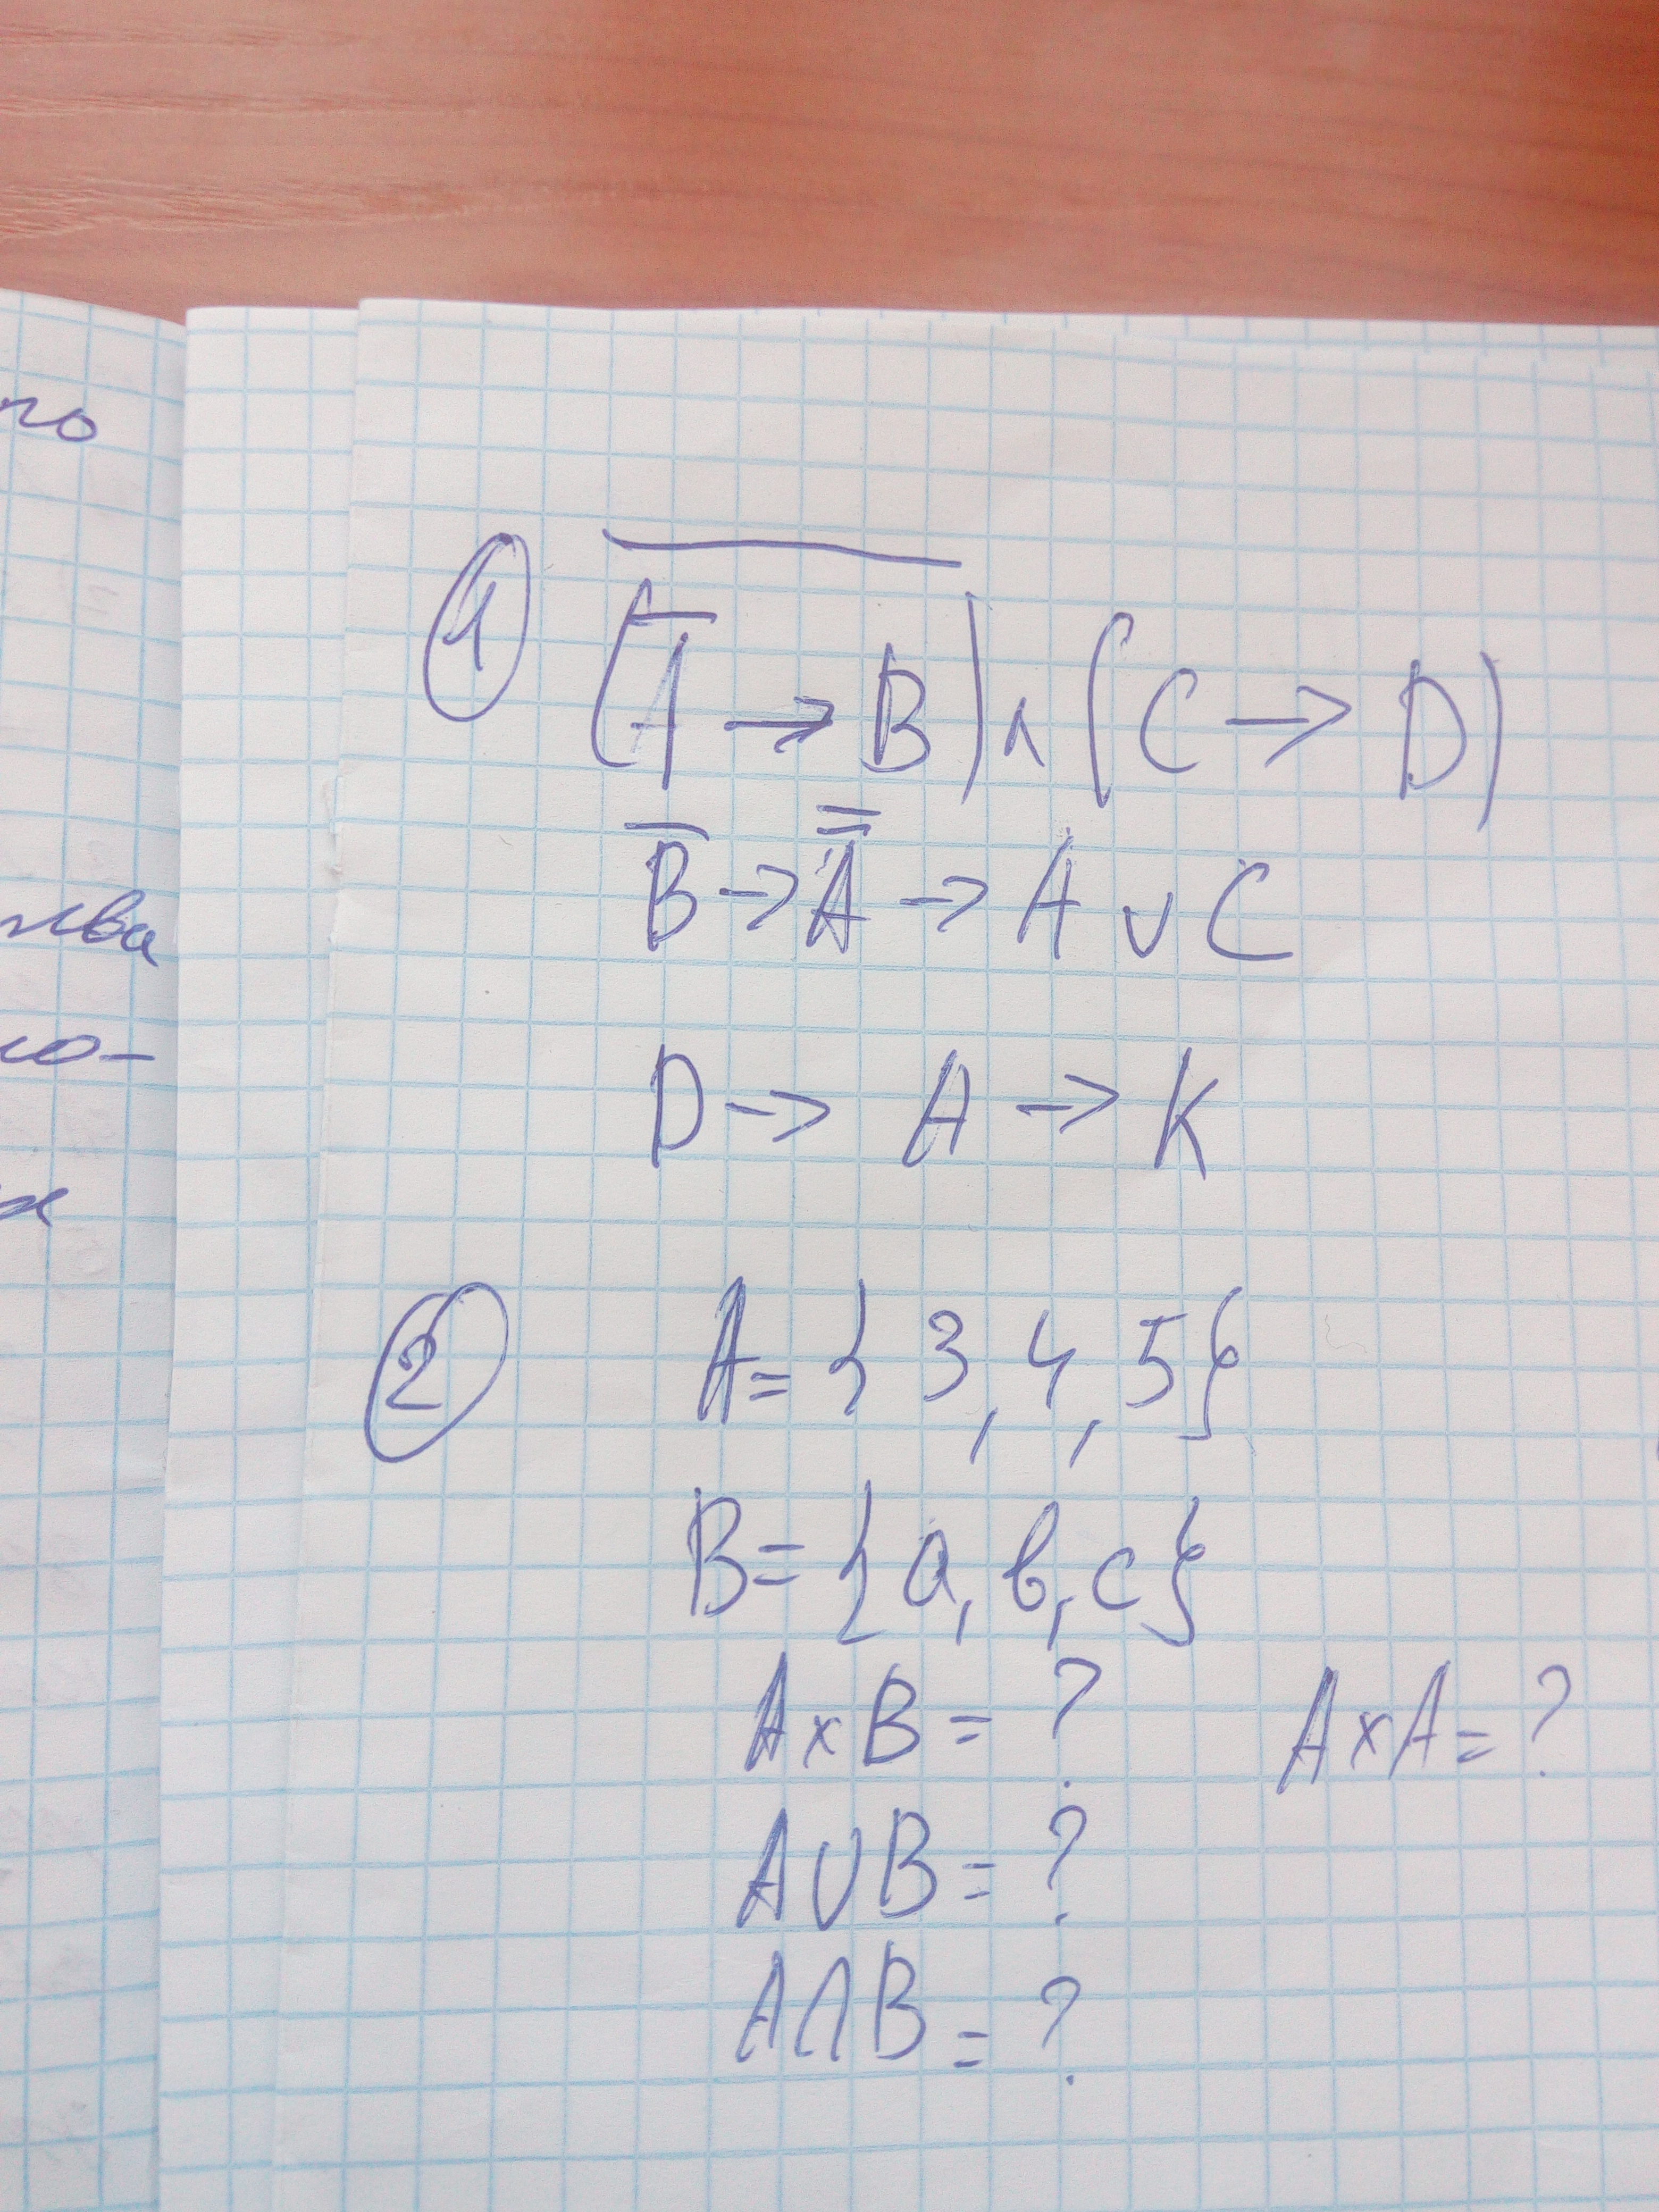 по
ства
ко-
1 \overline{(\overline{A} → B)} ∧ (C → D)
\overline{B} → \overline{\overline{A}} → A ∨ C
D → A → K
2 A = {3, 4, 5}
B = {a, b, c}
A × B = ? A × A = ?
A ∪ B = ?
A ∩ B = ?